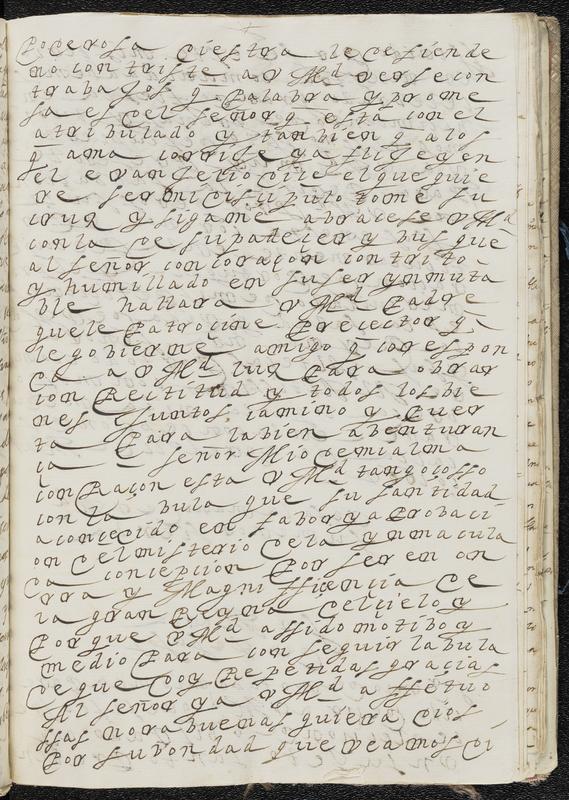 Pocerosa ciestra le cesiende
mo con triste a v Md verse con
trabajos q Palabra y prome
sa es cel señor q esta con el
atribulado y tanbien q alos
q ama corrije ya flige y en
el evanjelio cice el que quie
re ser mi cisipulo tome su
cruz y sigame abracese v Md
con la ce su padecer y bus que
al señor con coraçon contrito
y humillado en su ser ynmuta
ble hallara v Md Padre
que le Patrocine Precector q
le govierne amigo q corespon
ca a v Md luz Para obrar
con Rectitud y todos los bie
nes juntos camino y Puer
ta Para la bien abenturan
ça señor Mio ce mi alma
con Raçon esta v Md tan goçosso
con la bula que su santidad
a concecido en fabor ya Probaci
on cel misterio ce la ynmacula
ca concepcion Por ser en on
rra y Magnifficencia ce
la gran Reyna cel cielo y
Por que v Md a ssido motibo y
medio Para conseguir la bula
ce que coy Repetidas gracias
Al señor ya v Md a ffetuo
ssas norabuenas quiera cios
Por su bondad que veamos ci